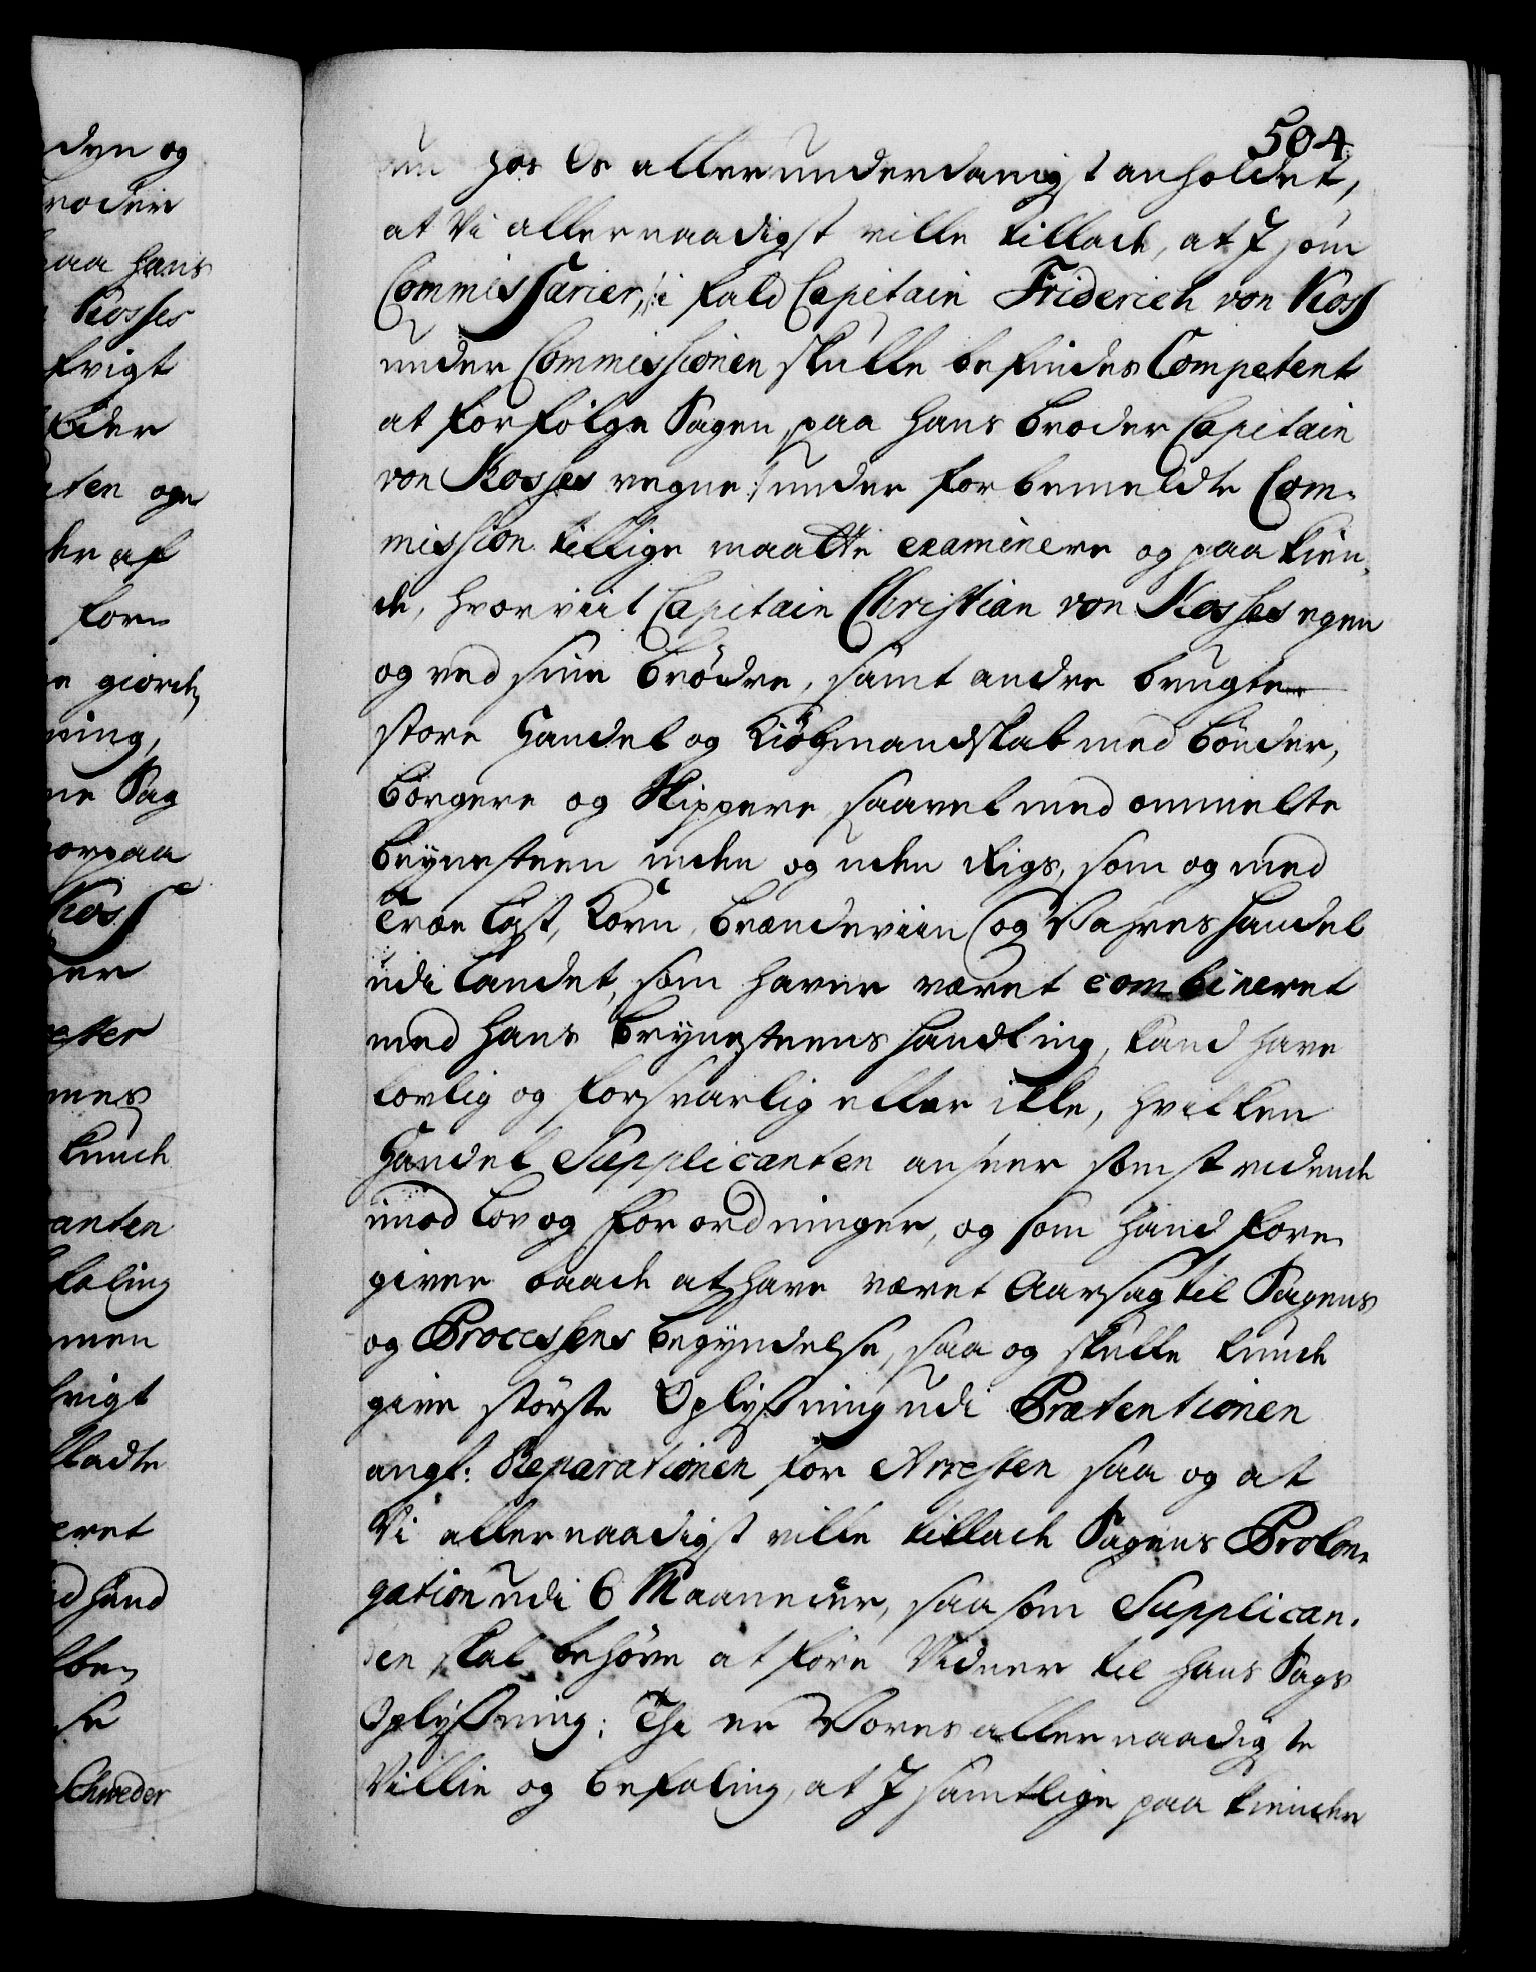 504.
nu hos Os allerunderdanigst anholdet,
at Vi allernaadigst ville tillade, at I som
Commissarier, /: i fald Capitain Friderich von Koss
under Commissionen skulle befindes Competent
at forfölge Sagen, paa hans broder Capitain
von Kosses vegne :/ under forbemeldte Com-
mission tillige maatte examinere og paakien-
de, hvorviit Capitain Christian von Kosses egen
og ved sine brödre, samt andre brugte
store Handel og Kiöbmandskab med bönder,
borgere og Skippere saavel med ommelte
brynesteen inden og uden Rigs, som og med
Træelast, Korn, brændeviin og Vahres Handel
udi Landet, som haver været combineret
med hans brynesteens handling, kand have
lovlig og forsvarlig eller ikke, hvilken
Handel Supplicanten anseer som stridende
imod Lov og forordninger, og som hand fore-
giver baade at have været Aarsag til Sagens
og Processens begyndelse, saa og skulle kunde
give störste Oplysning udi Prætentionen
angl: Reparationen for Arresten saa og at
Vi allernaadigst ville tillade Sagens Prolon-
gation udi 6 Maaneder, saasom Supplican-
ten skal behöve at före Vidner til hans Sags
Oplysning; Thi er Vores allernaadigste
Villie og befaling, at I samtlige paakiender
den og
broder
paa hans
Kosses
ten og
der af
for-
giorde
ning,
ne Sag
orpaa
Koss
ger
efter
mes
kunde
canten
faling
men
lladte
eret
d hand
Schrøder